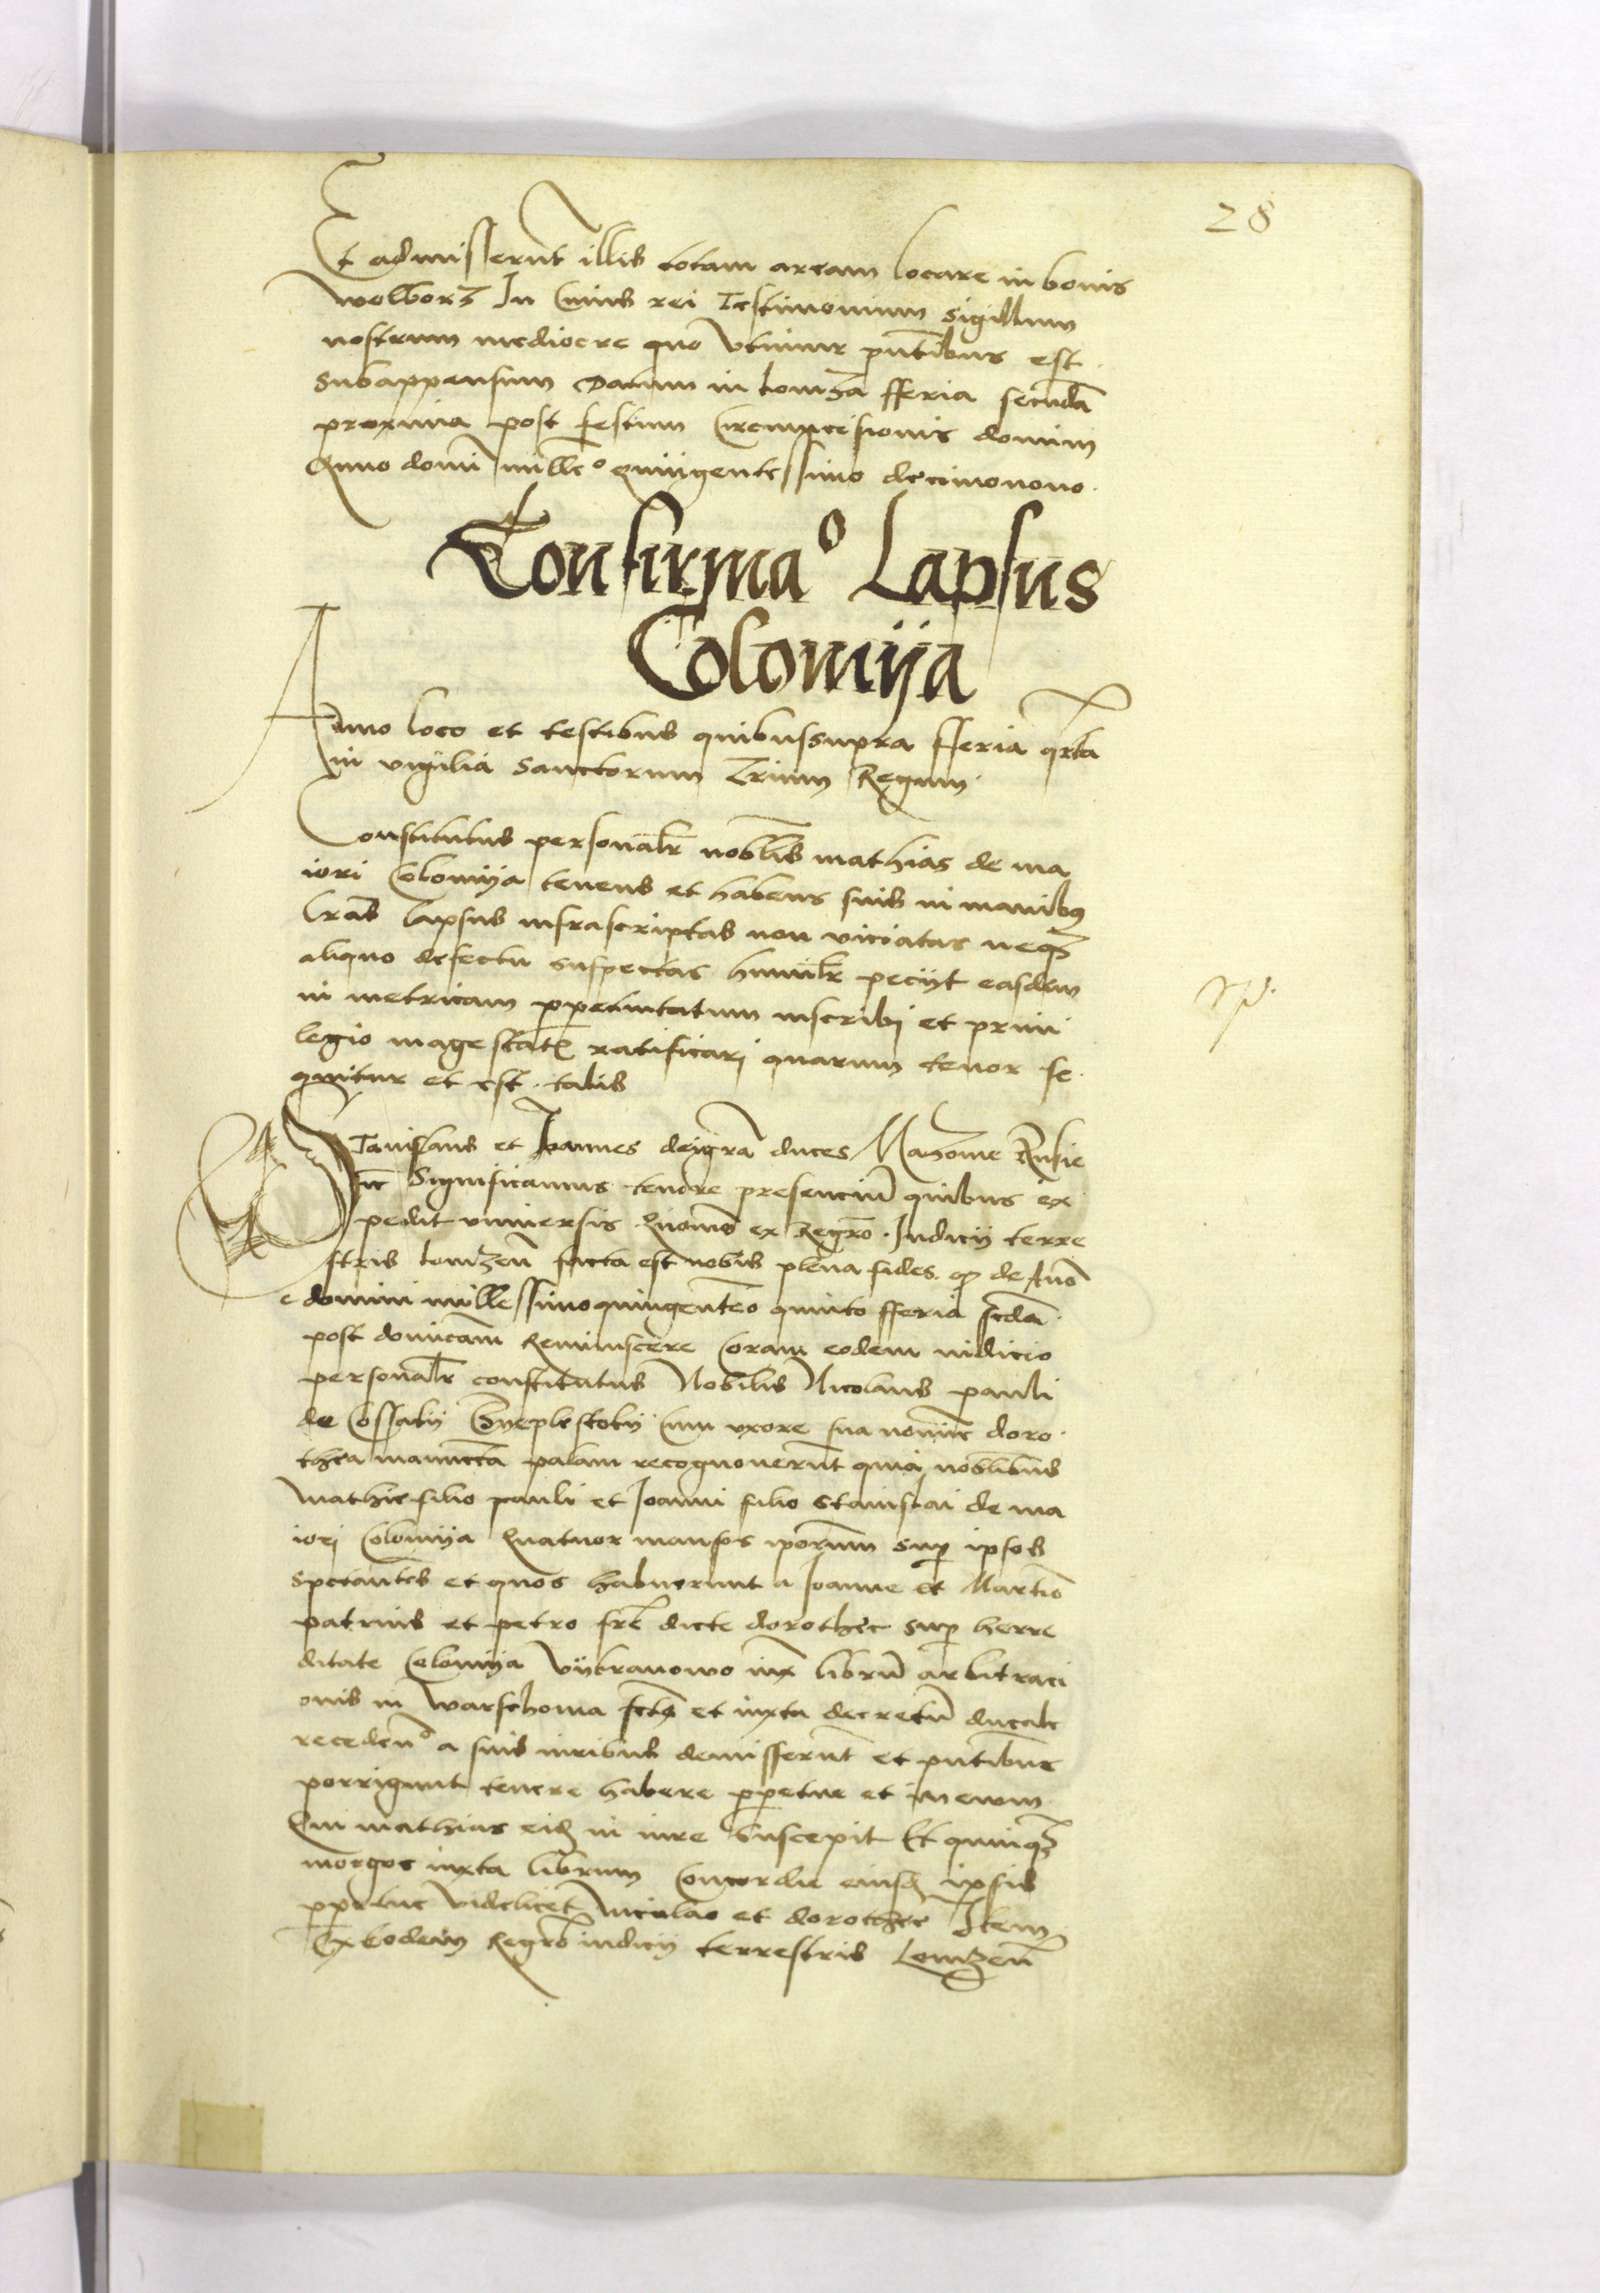 28
Et admisserūt illis totam aream locare in bonis
wolborz In Cuius rei Testimonium sigillum
nostrum mediocre quo vtimur pn̄tibus est
subappensum Datum in lomza fferia secūda
proxima post festum Circumcisionis domini
Anno domī mill̄o quingentessimo decimonono.
Confirmaº Lapsus
Colomija
Anno loco et testibus quibussupra fferia qrta
in vigilia Sanctorum Trium Regum
Constitutus personalr̄ nobl̄is mathias de ma
iori Colomija tenens et habens suis in manibus
lrās lapsus infrascriptas non viciatas neqz
aliquo defectu suspectas humilr̄ peciyt easdem
in metricam ppetuitatum inscribj et priui
legio magestat̄ ratificarj quarum tenor se
quitur et est talis
Stanislaus et Joannes deigrā duces Mazouie Russie
etc Significamus tenore presenciū quibus ex
pedit vniuersis Quomō ex Regrō Judicij terre
stris lomzen̄ facta est nobis plena fides q de Anō
domini millessimoquingentēo quinto fferia scdā
post domīcam Reminiscere Coram eodem iudicio
personalr̄ constitutus Nobilis Nicolaus pauli
de Cossaky cum vxore sua nomīe doro
thea maniūcta palam recognouerūt quia nobilibus
Mathie filio pauli et Joanni filio Stanislai de ma
iorj Colomija Quatuor mansos iporum sup ipsos
spectantes et quos habuerunt a Joanne et Martīo
patruis et petro frē dicte dorothee sup herre
ditate Colomija Vijtranowo iux librū arbitraci
onis in Warschouia fcts et iuxta decretū ducale
recedenº a suis iuribus demisserūt et pn̄tibus
porrigunt tenere habere ppetue et in ewum
Qui mathias eisd in iure Suscepit Et quinqz
morgos iuxta librum Concordie eiusd ipsis
ppetue videlicet Nicolao et dorothee Item
Ex Eodem Regrō iudicij terrestris Lomzen̄